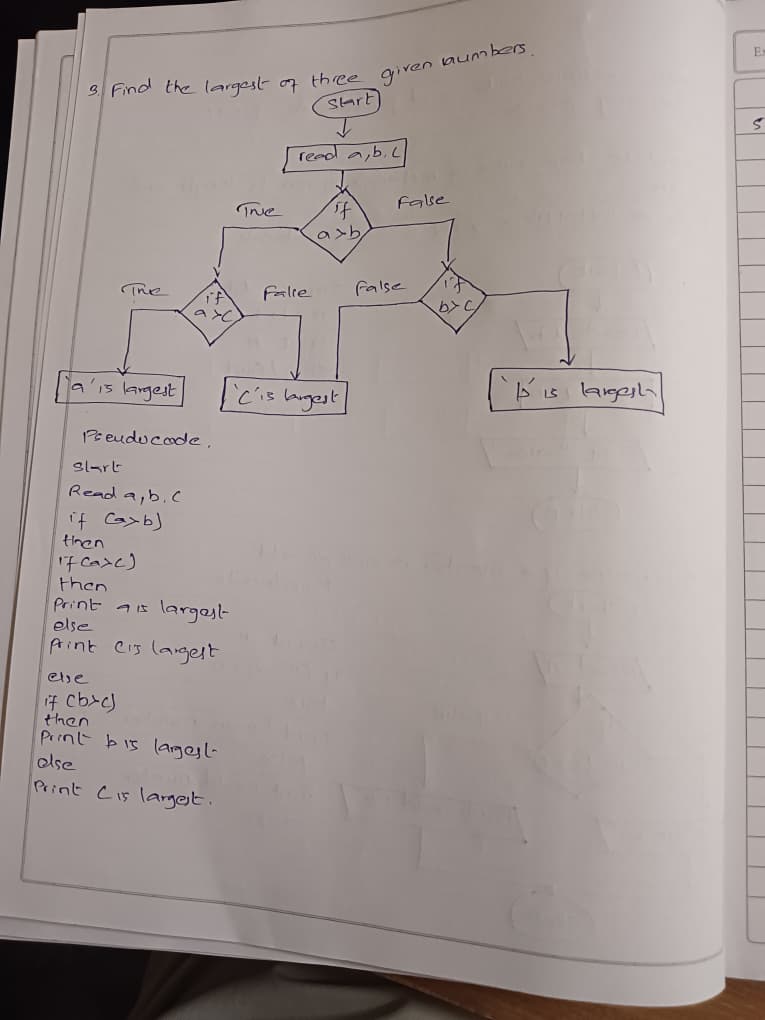 3. Find the largest of three given numbers.
Start
read a,b,c
True
if
a>b
False
True
if
a>c
False
False
if
b>c
'a' is largest
'c' is largest
'b' is largest
Pseudocode.
Start
Read a, b, c
if (a>b)
then
if (a>c)
then
Print a is largest
else
Print c is largest
else
if (b>c)
then
Print b is largest
else
Print c is largest.